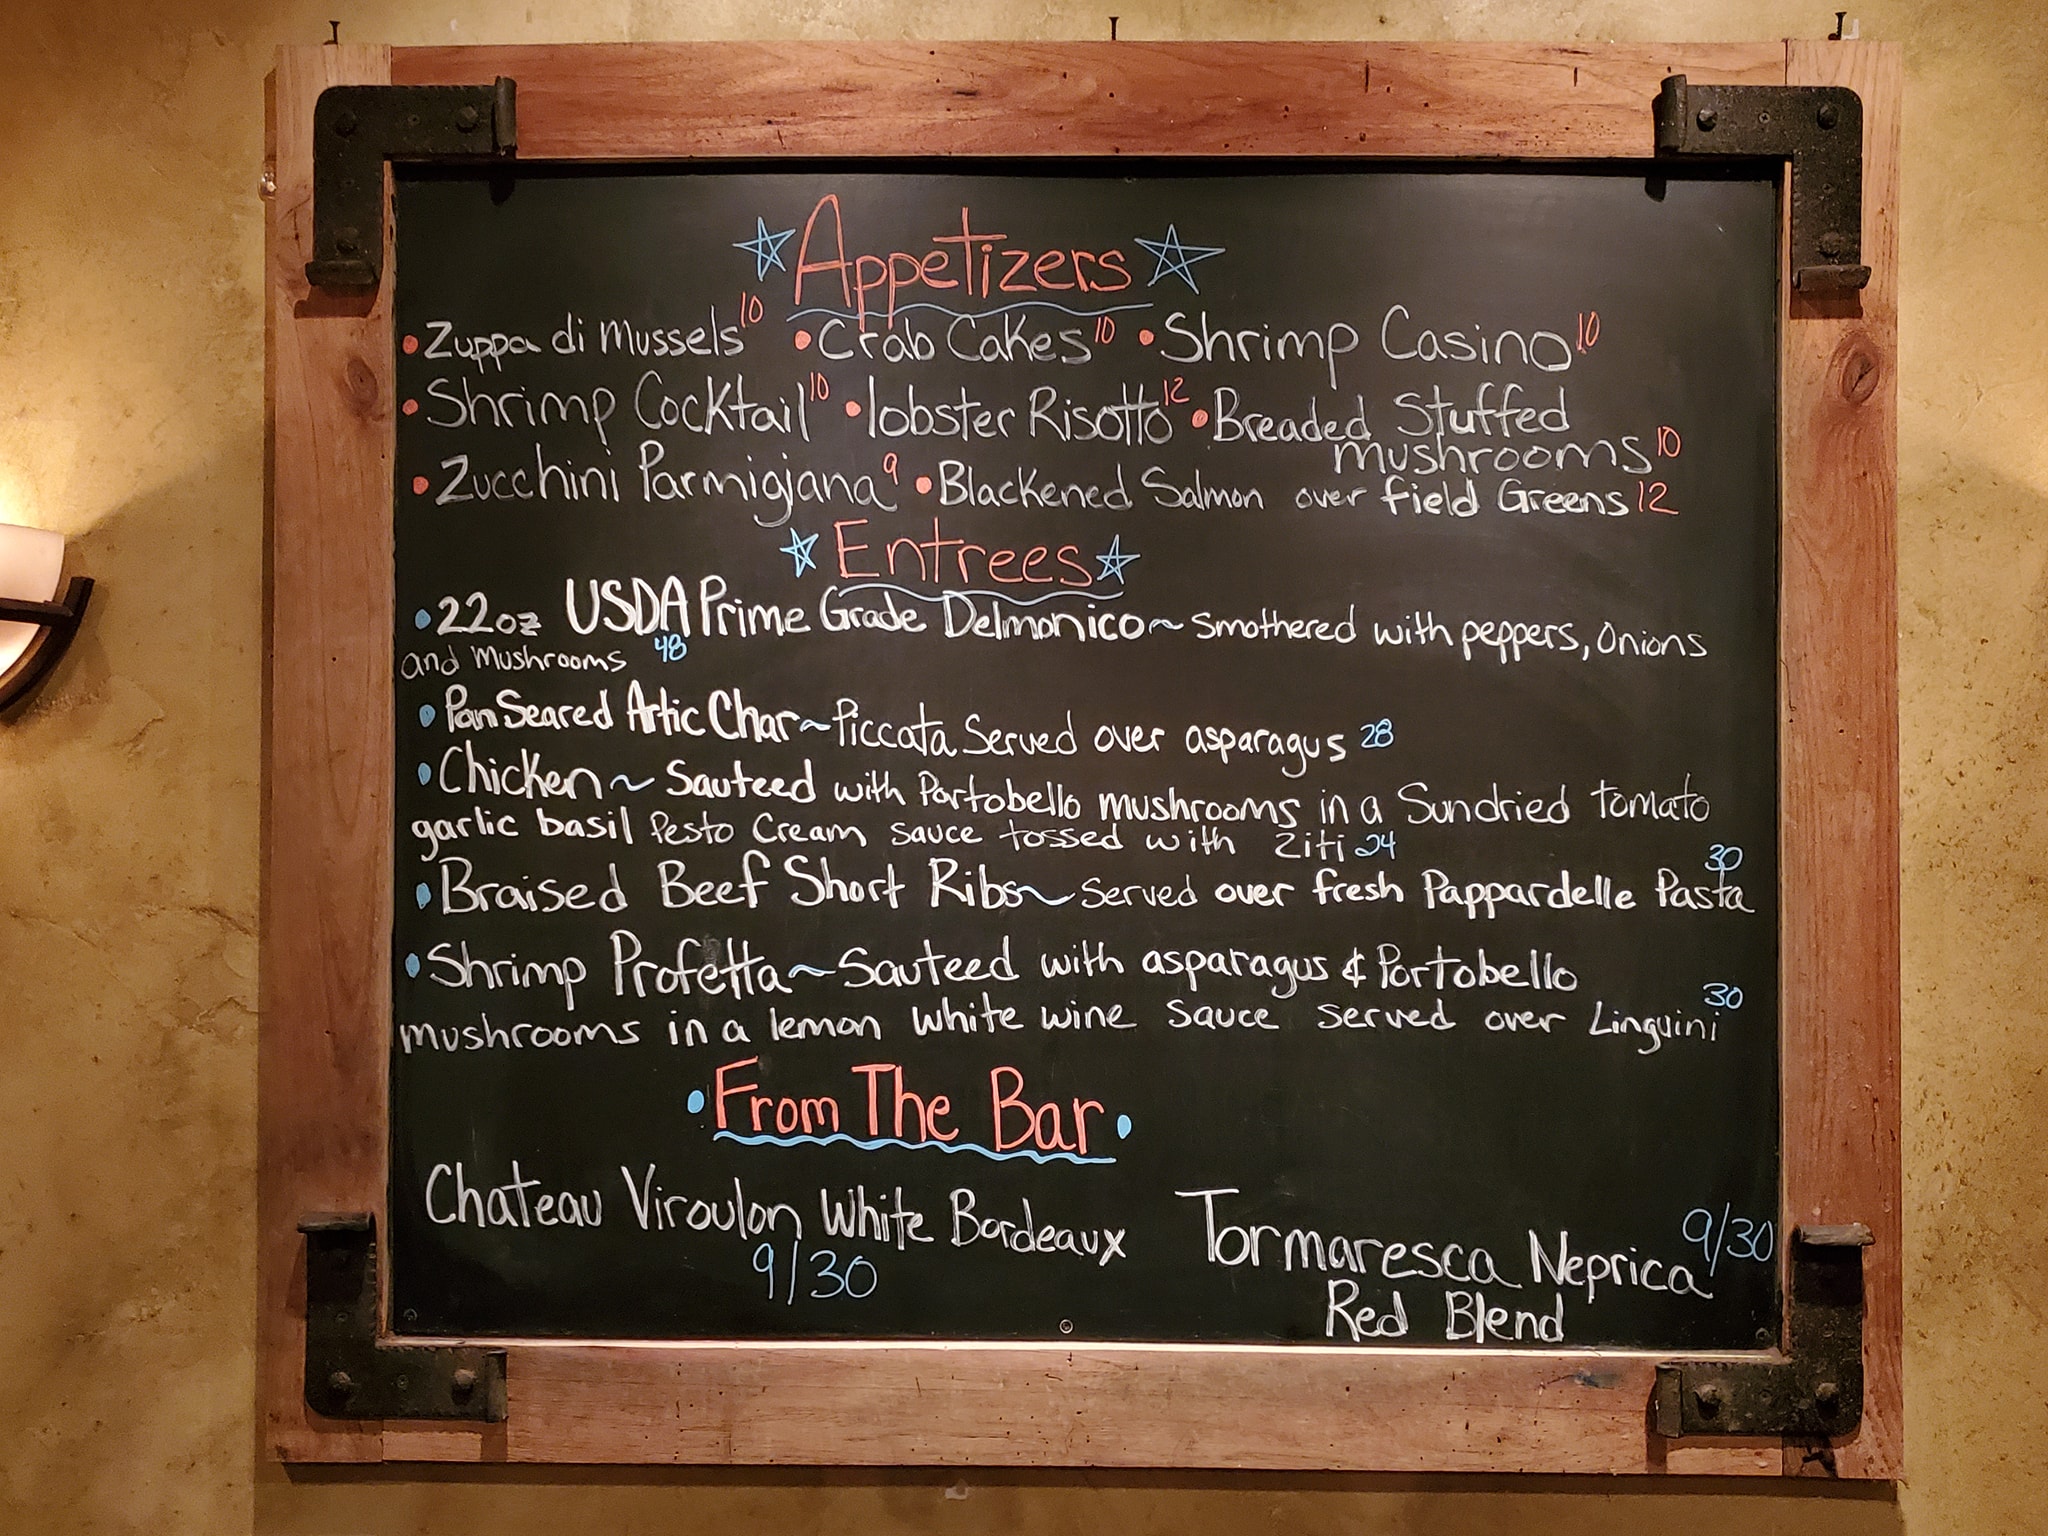 Appetizers
• Zuppa di Mussels 10 • Crab Cakes 10 • Shrimp Casino 10
• Shrimp Cocktail 10 • lobster Risotto 12 • Breaded Stuffed
mushrooms 10
• Zucchini Parmigiana 9 • Blackened Salmon over field Greens 12
Entrees
• 22oz USDA Prime Grade Delmonico ~ Smothered with peppers, Onions
and Mushrooms 48
• Pan Seared Artic Char ~ Piccata Served over asparagus 28
• Chicken ~ Sauteed with Portobello mushrooms in a Sundried tomato
garlic basil Pesto Cream sauce tossed with Ziti 24
• Braised Beef Short Ribs ~ Served over fresh Pappardelle Pasta 30
• Shrimp Profetta ~ Sauteed with asparagus & Portobello
mushrooms in a lemon white wine sauce served over Linguini 30
• From The Bar •
Chateau Viroulon White Bordeaux
9/30
Tormaresca Neprica 9/30
Red Blend